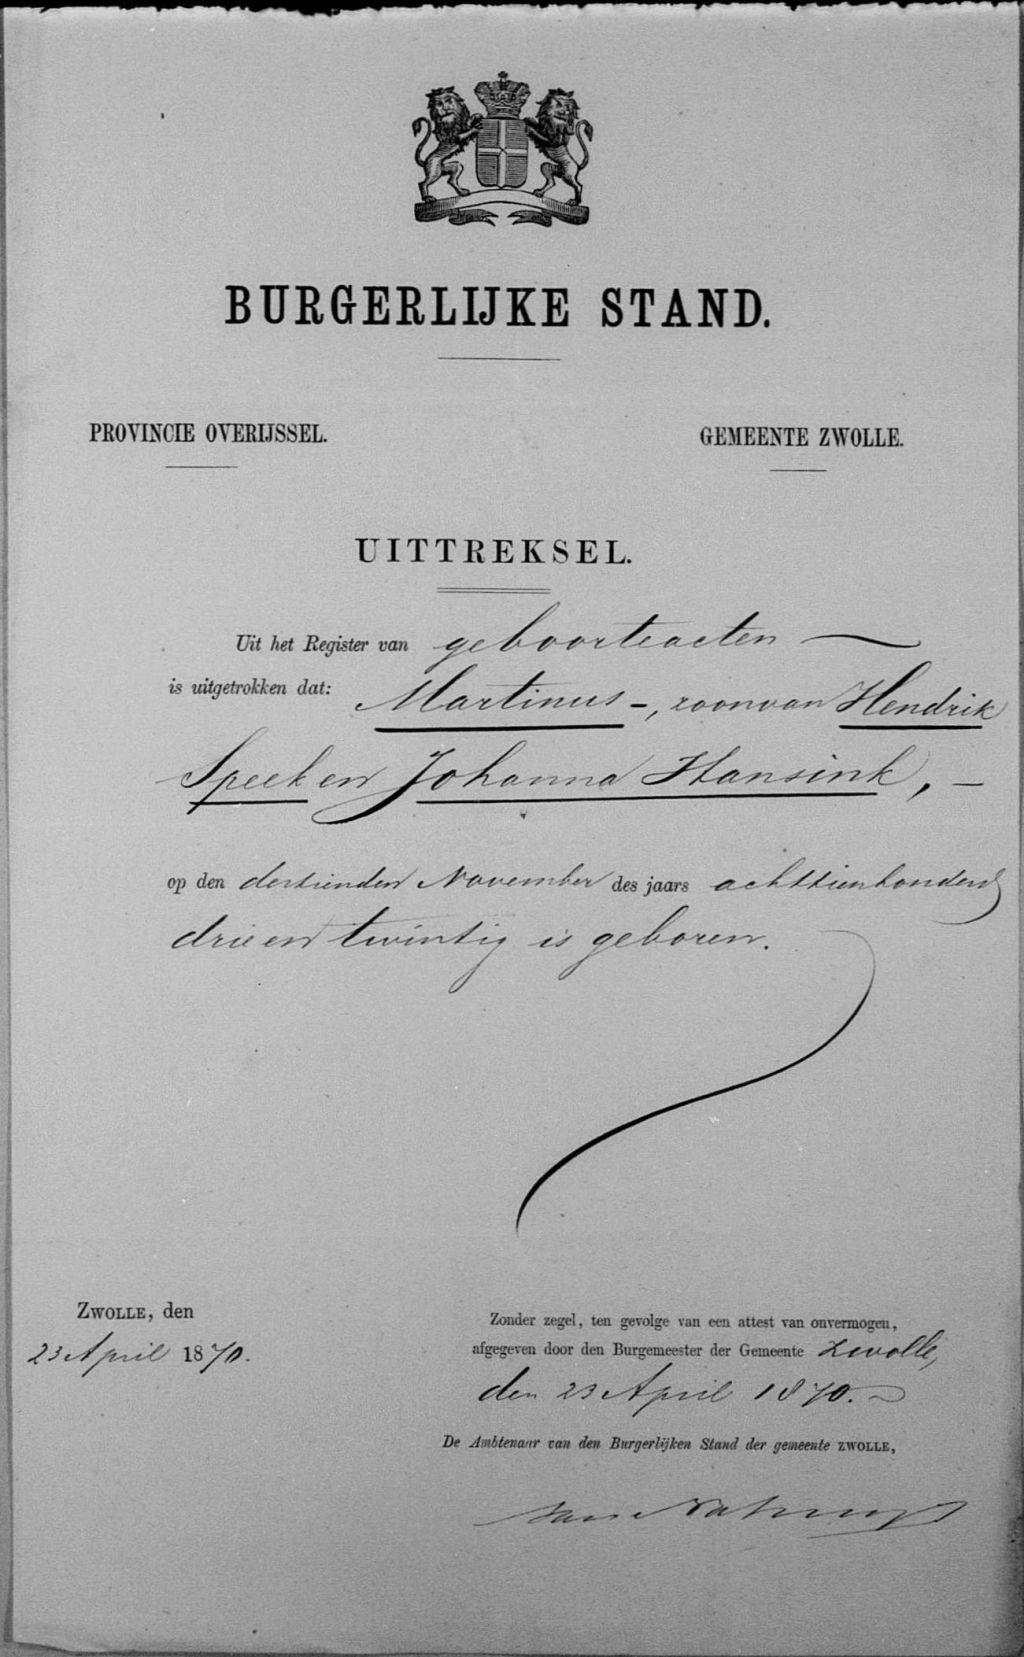 BURGERLIJKE STAND.
PROVINCIE OVERIJSSEL.
GEMEENTE ZWOLLE.
UITTREKSEL.
Uit het Register van geboorteacten —
is uitgetrokken dat: Martinus -, zoon van Hendrik
Speek en Johanna Hansink, -
op den dertienden November des jaars achttienhonderd
drie en twintig is geboren.
ZWOLLE, den
23 April 1870.
Zonder zegel, ten gevolge van een attest van onvermogen,
afgegeven door den Burgemeester der Gemeente Zwolle,
den 23 April 1870. -
De Ambtenaar van den Burgerlijken Stand der gemeente ZWOLLE,